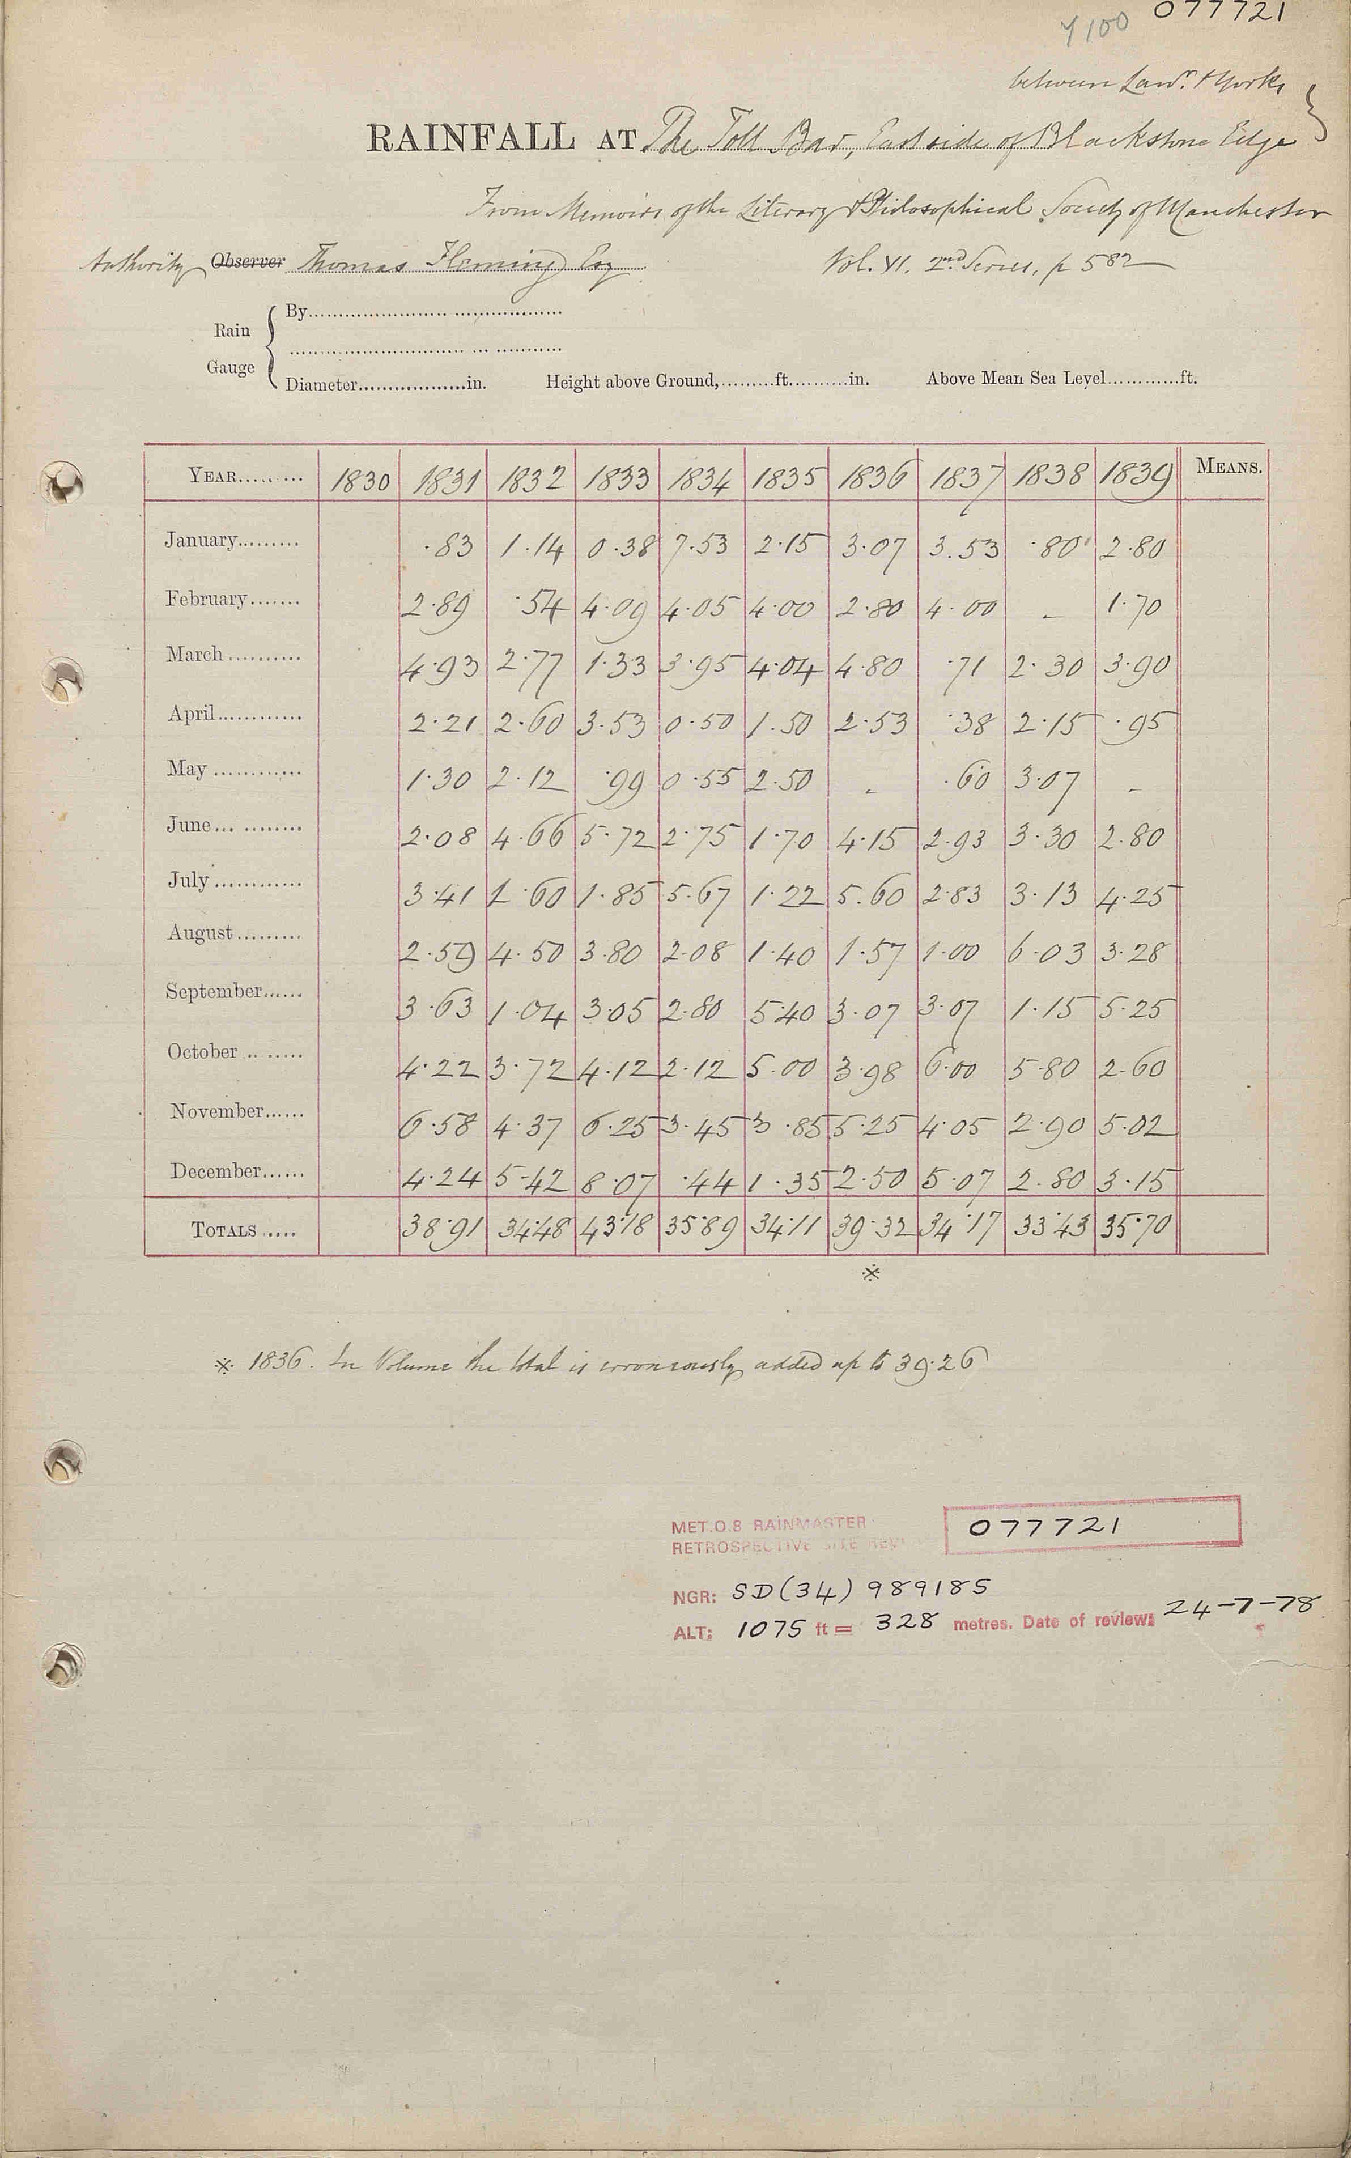 077721
Y100
between Lanc. & Yorks
RAINFALL AT The Toll Bar, East side of Blackstone Edge
From Memoirs of the Literary & Philosophical Society of Manchester
Authority Observer Thomas Fleming Esq Vol. VI. 2nd Series, p 582
Rain Gauge
By
Diameter in. Height above Ground, ft. in. Above Mean Sea Level ft.
YEAR 1830 1831 1832 1833 1834 1835 1836 1837 1838 1839 MEANS.
January ·83 1·14 0·38 7·53 2·15 3·07 3·53 ·80 2·80
February 2·89 ·54 4·09 4·05 4·00 2·80 4·00 - 1·70
March 4·93 2·77 1·33 3·95 4·04 4·80 ·71 2·30 3·90
April 2·21 2·60 3·53 0·50 1·50 2·53 ·38 2·15 ·95
May 1·30 2·12 ·99 0·55 2·50 - ·60 3·07 -
June 2·08 4·66 5·72 2·75 1·70 4·15 2·93 3·30 2·80
July 3·41 1·60 1·85 5·67 1·22 5·60 2·83 3·13 4·25
August 2·59 4·50 3·80 2·08 1·40 1·57 1·00 6·03 3·28
September 3·63 1·04 3·05 2·80 5·40 3·07 3·07 1·15 5·25
October 4·22 3·72 4·12 2·12 5·00 3·98 6·00 5·80 2·60
November 6·58 4·37 6·25 3·45 3·85 5·25 4·05 2·90 5·02
December 4·24 5·42 8·07 ·44 1·35 2·50 5·07 2·80 3·15
TOTALS 38·91 34·48 43·18 35·89 34·11 39·32 34·17 33·43 35·70
※
※ 1836. In Volume the total is erroneously added up to 39·26
MET.O.8 RAINMASTER 077721
RETROSPECTIVE SITE REVIEW
NGR: SD (34) 989185
ALT: 1075 ft = 328 metres. Date of review: 24-7-78